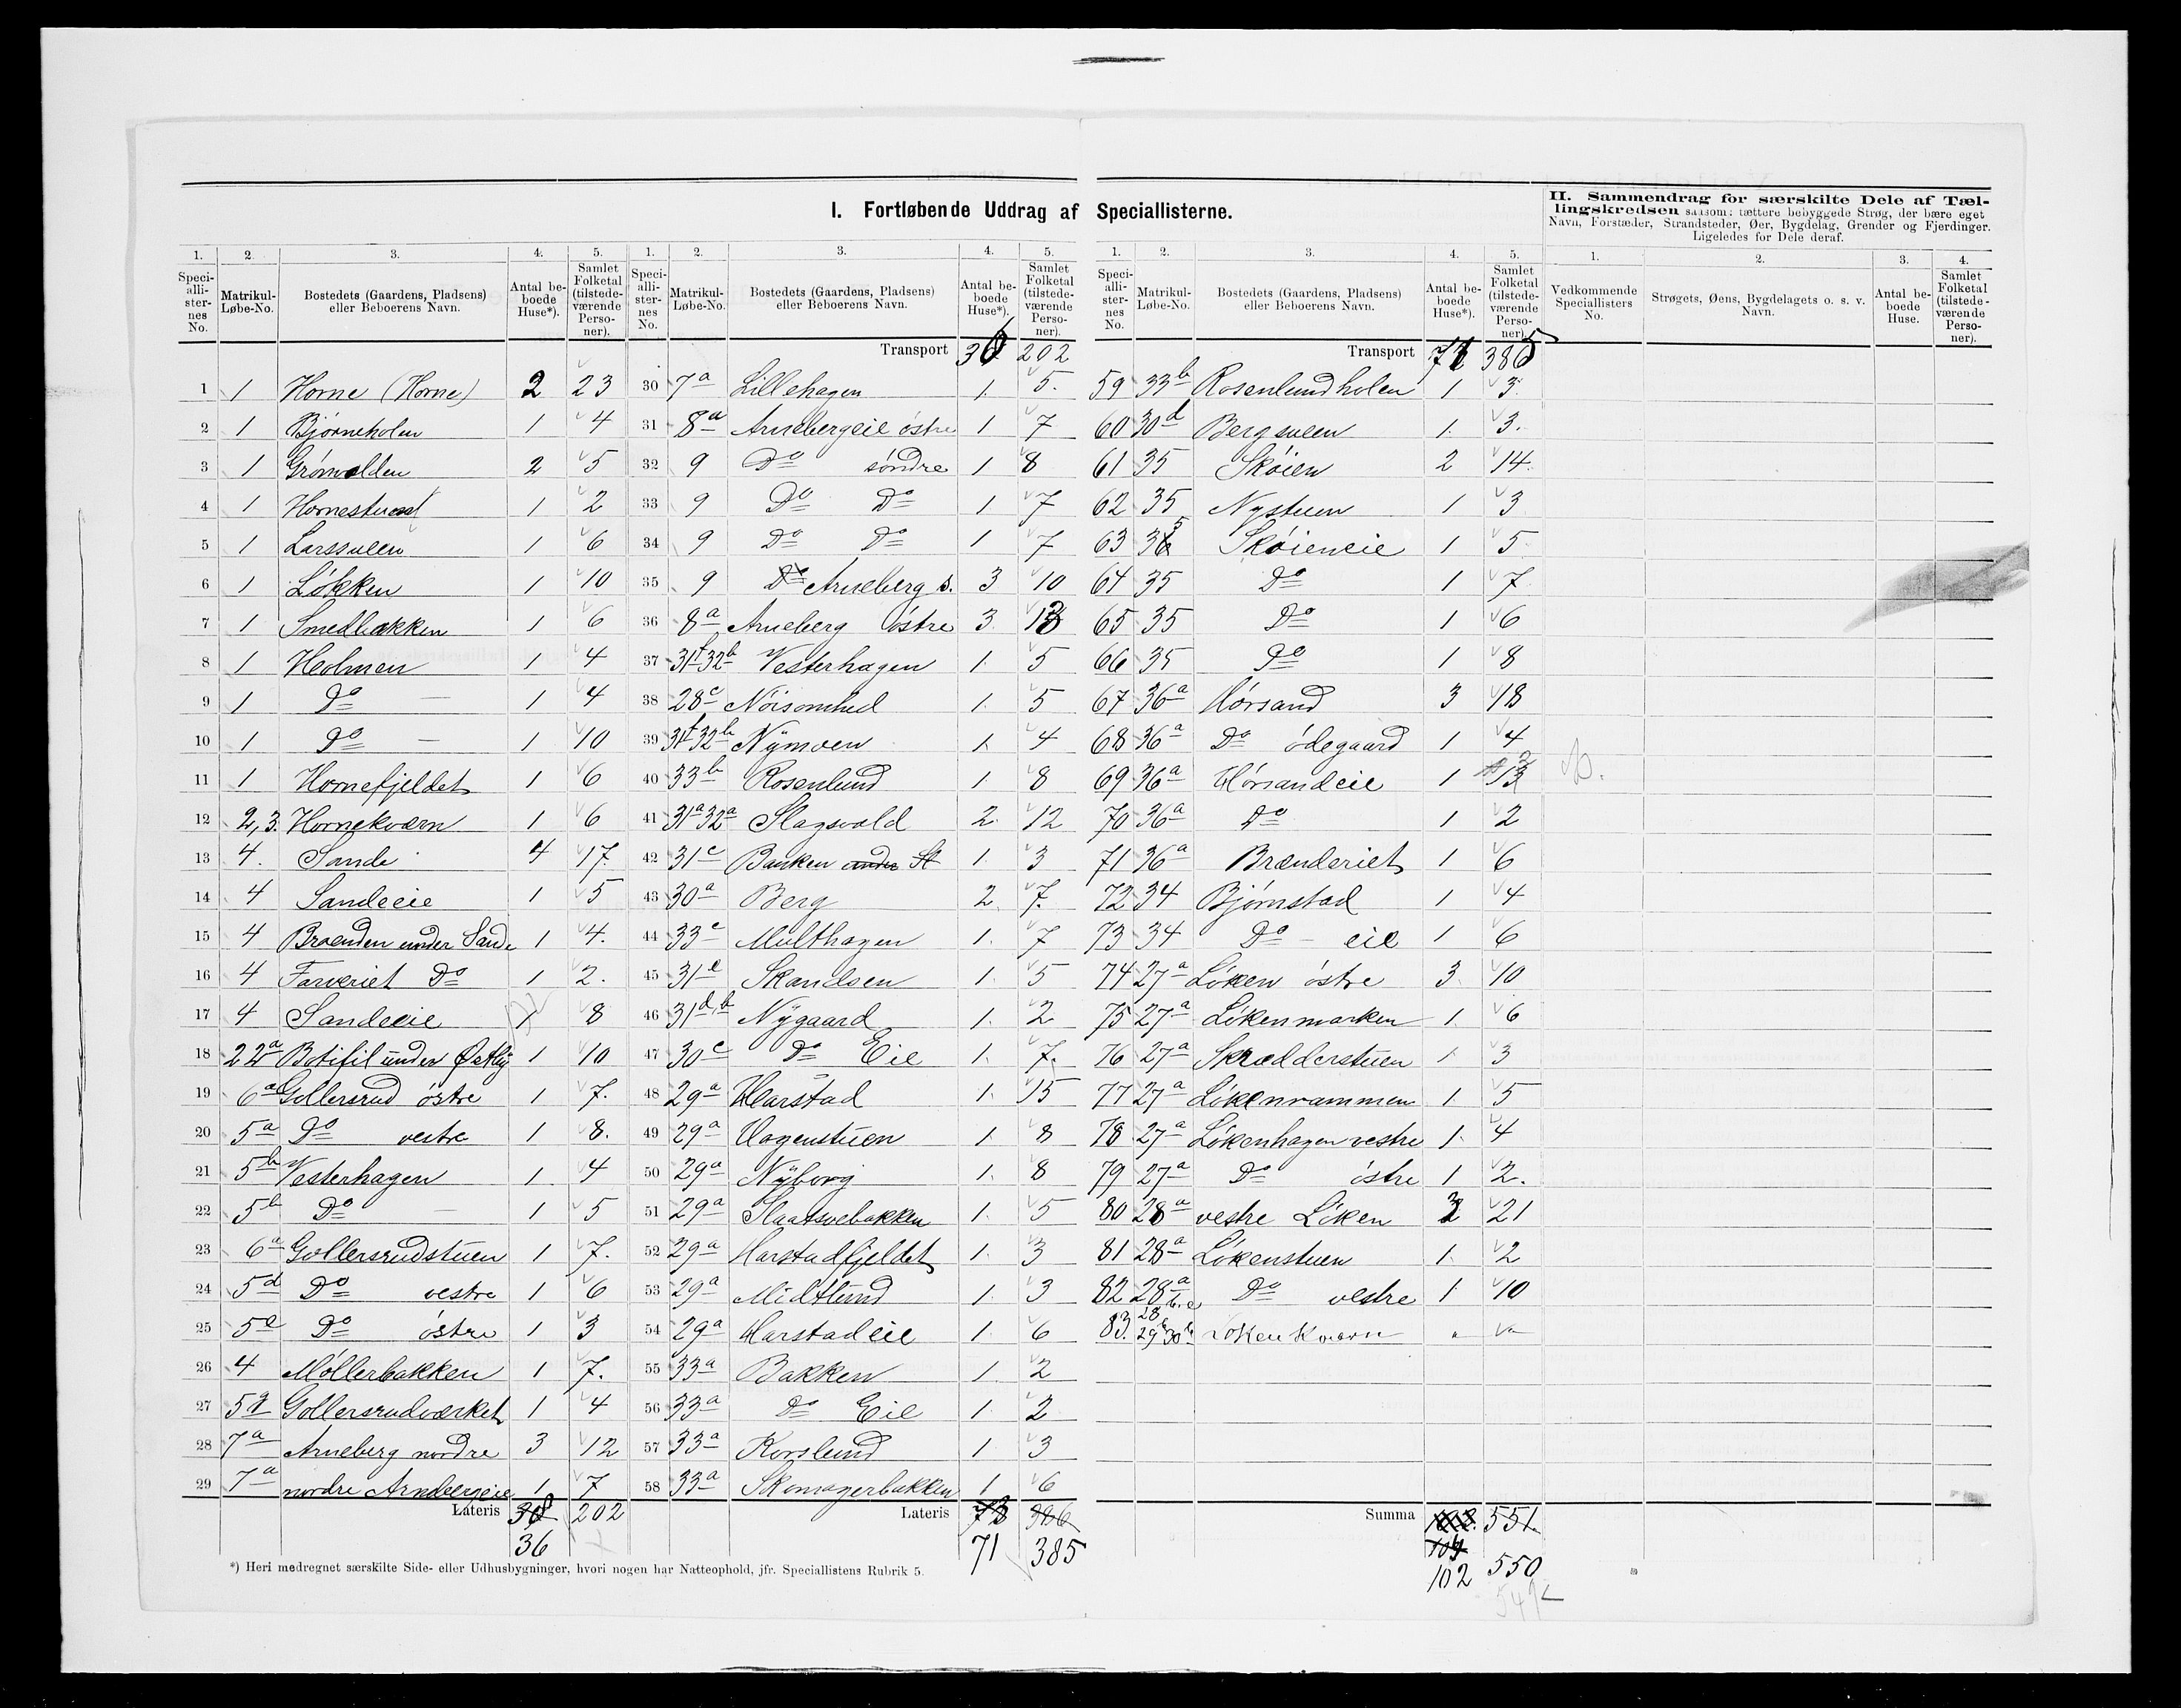 I. Fortløbende Uddrag af Speciallisterne.
II. Sammendrag for særskilte Dele af Tællingskredsen saasom: tættere bebyggede Strøg, der bære eget
Navn, Forstæder, Strandsteder, Øer, Bygdelag, Grender og Fjerdinger.
Ligeledes for Dele deraf.
1. 2. 3. 4. 5.
Speciallisternes No. Matrikul-Løbe-No. Bostedets (Gaardens, Pladsens) eller Beboerens Navn. Antal beboede Huse*). Samlet Folketal (tilstedeværende Personer).
1 1 Horne (Horne) 2 23
2 1 Bjørneholen 1 4
3 1 Grønvolden 2 5
4 1 1 2
5 1 Larssveen 1 6
6 1 Løkken 1 10
7 1 Smedbakken 1 6
8 1 Holmen 1 4
9 1 Do — 1 4
10 1 Do — 1 10
11 1 Hornefjeldet 1 6
12 2,3. Hornekværn 1 6
13 4. Sande 4 17.
14 4 Sandeeie 1 5
15 4 Brænden under Sande 1 4.
16 4 Farveriet Do 1 2.
17 4 Sandeeie 8
18 22a Botifil under Østby 1 10
19 6a Gollersrud østre 1 7.
20 5a Do vestre 1 8.
21 5b Vesterhagen 1 4
22 5b Do — 1 5
23 6a Gollersrudstuen 1 7.
24 5d Do vestre 1 6
25 5e Do østre 1 3
26 4 Møllerbakken 1 7.
27 5 Gollersrudværket 1 4
28 7a Arneberg nordre 3 12
29 7a nordre Arnebergeie 1 7
Lateris 38 202
36
*) Heri medregnet særskilte Side- eller Udhusbygninger, hvori nogen har Natteophold, jfr. Speciallistens Rubrik 5.
1. 2. 3. 4. 5.
Speciallisternes No. Matrikul-Løbe-No. Bostedets (Gaardens, Pladsens) eller Beboerens Navn. Antal beboede Huse*). Samlet Folketal (tilstedeværende Personer).
Transport 36 202
30 7a Lillehagen 1. 5.
31 8a Arnebergeie østre 1 7
32 9 Do søndre 1 8
33 9 Do Do 1 7
34 9 Do Do 1 7
35 9 Do Arneberg s. 3 10
36 8a Arneberg østre 3
37 31f 32b Vesterhagen 1. 5
38 28c Nøisomhed 1. 5
39 31f 32b Nymoen 1. 4
40 33b Rosenlund 1 8
41 31a 32a Slagsvold 2. 12
42 31c Banken under Sl 1. 3
43 30a Berg 2. 7.
44 33c Multhagen 1. 7
45 31e Skandsen 1. 5
46 31d,b Nygaard 1. 2
47 30c Do Eie 1. 7.
48 29a Harstad 1. 15
49 29a Hagenstuen 1. 8
50 29a Nyborg 1. 8
51 29a Slaatsvebakken 1. 5
52 29a Harstadfjeldet 1. 3
53 29a Midtlund 1. 3
54 29a Harstadeie 1. 6
55 33a Bakken 1. 2
56 33a Do Eie 1. 2
57 33a Korslund 1 3
58 33a Skomagerbakken 1 6
Lateris 73 386
71 385
1. 2. 3. 4. 5.
Speciallisternes No. Matrikul-Løbe-No. Bostedets (Gaardens, Pladsens) eller Beboerens Navn. Antal beboede Huse*). Samlet Folketal (tilstedeværende Personer).
Transport 71 385
59 33b Rosenlundholen 1 3.
60 30d Bergsveen 1. 3.
61 35 Skøien 2 14.
62 35 Nystuen 1 3
63 35 Skøieneie 1 5
64 35 Do 1 7
65 35 Do 1 6
66 35 Do 1 8
67 36a Hørsand 3 18
68 36a Do ødegaard 1 4
69 36a Hørsandeie 1 13
70 36a Do 1 2
71 36a Brænderiet 1 6
72 34 Bjørnstad 1 4
73 34 Do - eie 1 6
74 27a Løken østre 3. 10
75 27a Løkenmarken 1. 6
76 27a Skrædderstuen 1. 3
77 27a Løkenrammen 1 5
78 27a Løkenhagen vestre 1. 4
79 27a Do østre 1 2.
80 28a vestre Løken 21
81 28a Løkenstuen 1. 2
82 28a Do vestre 1. 10
83. 28 b.c 29b 30b Løken Kværn " "
Summa 551.
104
102 550
549
1. 2. 3. 4.
Vedkommende Speciallisters No. Strøgets, Øens, Bygdelagets o. s. v. Navn. Antal beboede Huse. Samlet Folketal (tilstedeværende Personer).